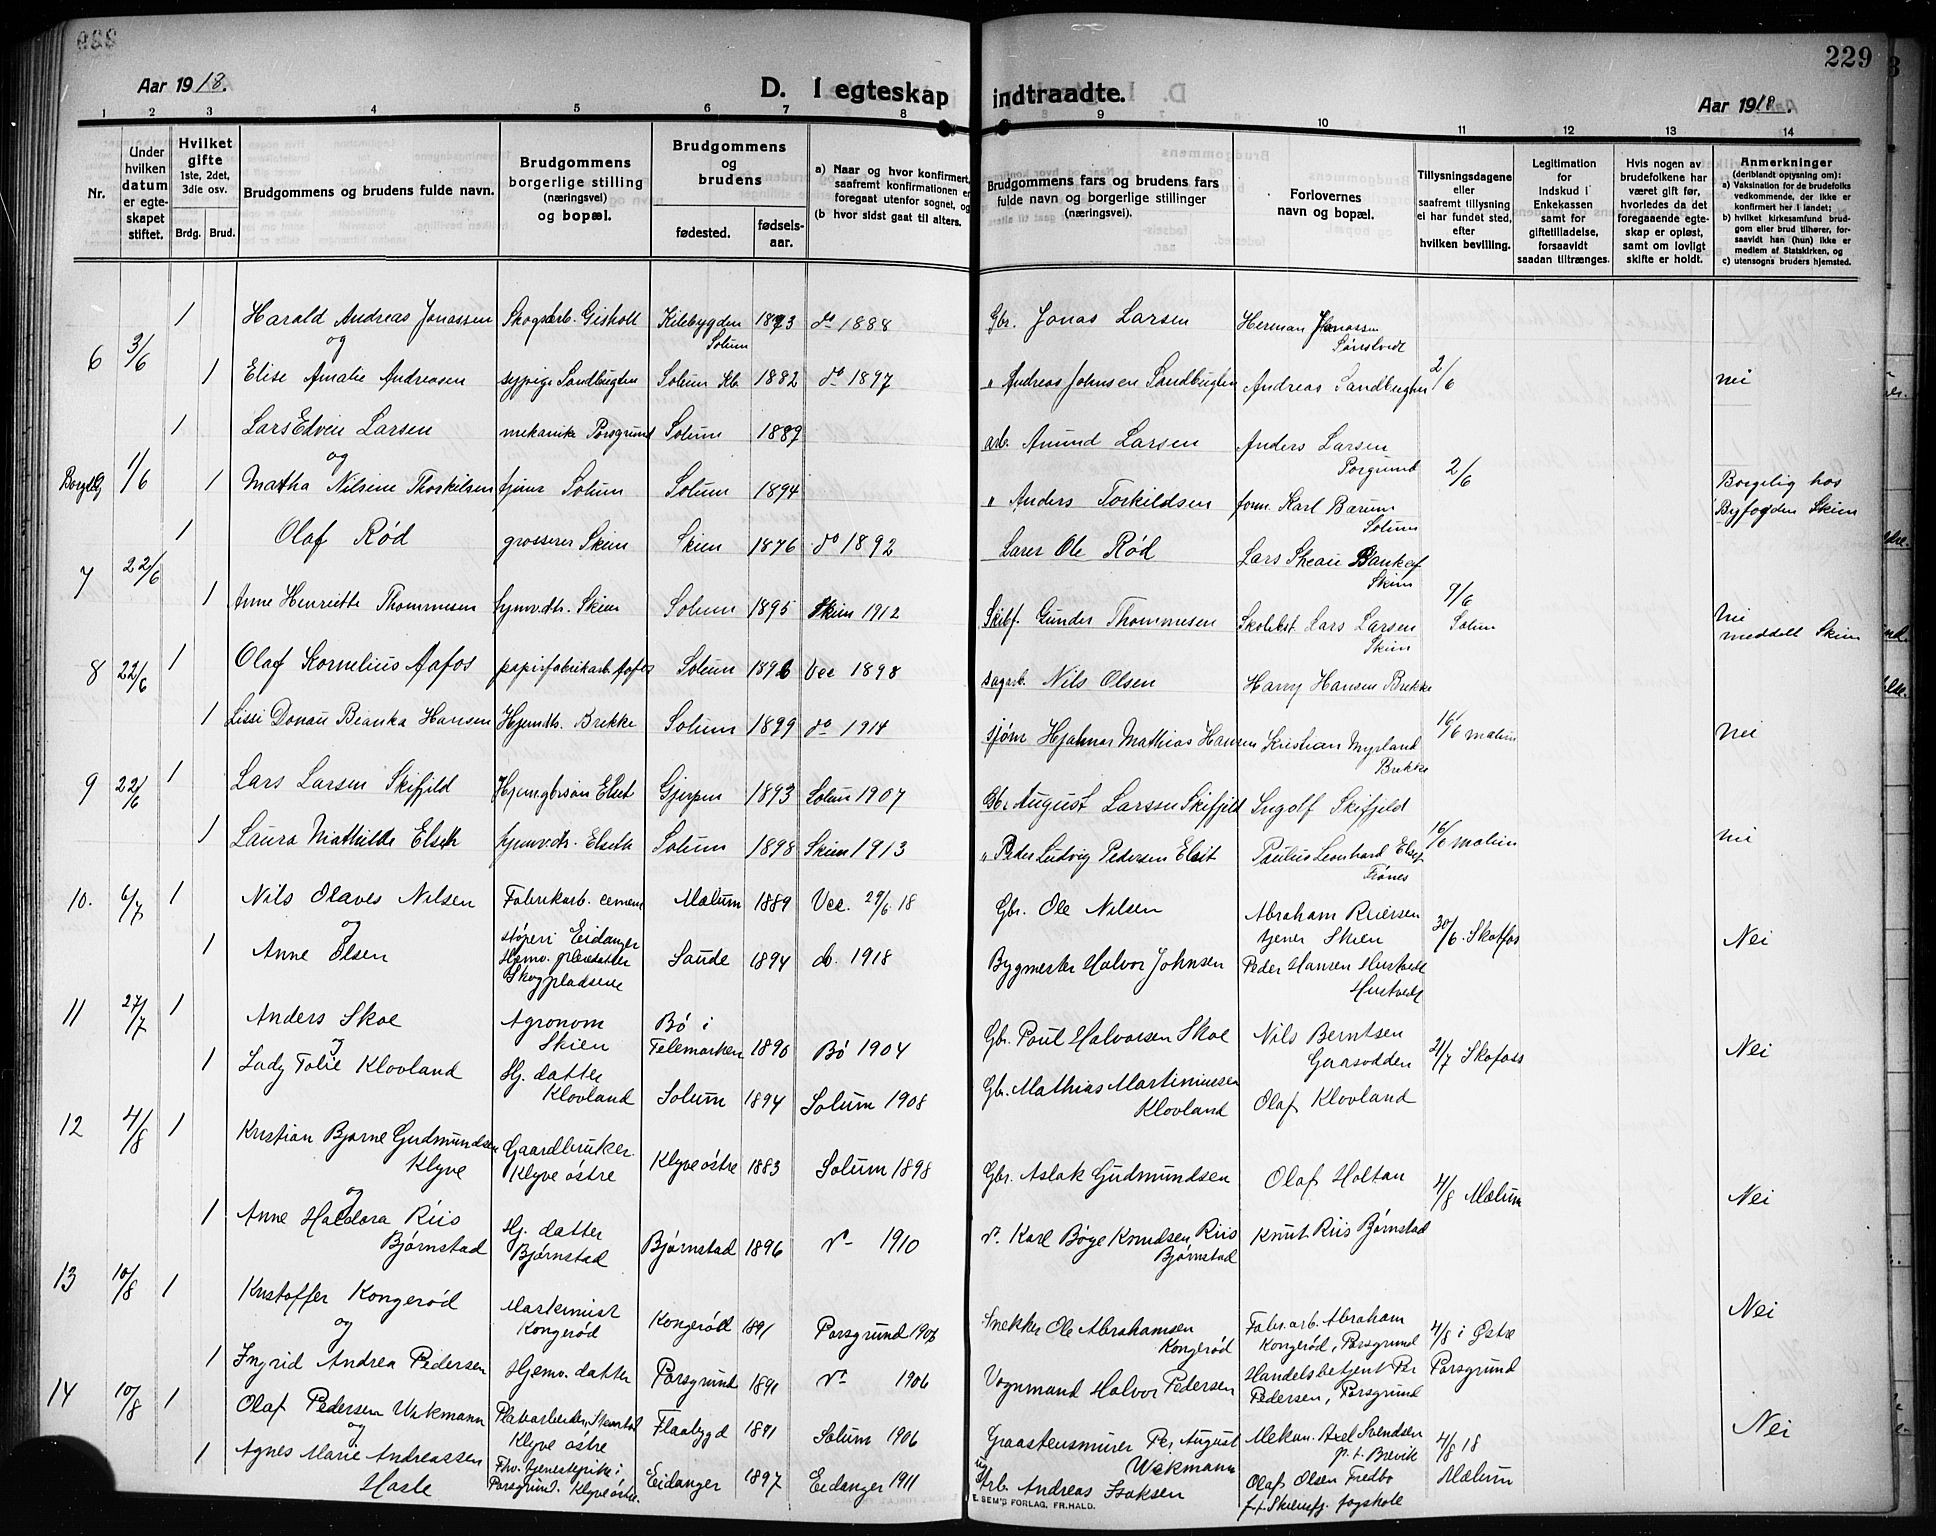 229
Aar 1918.
D. I egteskap indtraadte.
Aar 1918.
1 2 3 4 5 6 7 8 9 10 11 12 13 14
Nr.
Under hvilken datum er egteskapet stiftet.
Hvilket gifte 1ste, 2det, 3die osv.
Brdg. Brud.
Brudgommens og brudens fulde navn.
Brudgommens borgerlige stilling (næringsvei) og bopæl.
Brudgommens og brudens
fødested. fødselsaar.
a) Naar og hvor konfirmert, saafremt konfirmationen er foregaat utenfor sognet, og
(b hvor sidst gaat til alters.
Brudgommens fars og brudens fars fulde navn og borgerlige stillinger (næringsvei).
Forlovernes navn og bopæl.
Tillysningsdagene eller saafremt tillysning ei har fundet sted, efter hvilken bevilling.
Legitimation for indskud i Enkekassen samt for giftetilladelse, forsaavidt saadan tiltrænges.
Hvis nogen av brudefolkene har været gift før, hvorledes da det foregaaende egteskap er opløst, samt om lovligt skifte er holdt.
Anmerkninger (deriblandt opysning om):
a) Vaksination for de brudefolks vedkommende, der ikke er konfirmert her i landet;
b) hvilket kirkesamfund brudgom eller brud tilhører, forsaavidt han (hun) ikke er medlem av Statskirken, og
c) utensogns bruders hjemsted.
6 3/6 1 Harald Andreas Jonassen Skogsarb. Gisholt Kilebygden Solum 1873 do 1888 Gbr. Jonas Larsen Herman Jonassen
og
1 Elise Amalie Andreasen sypige Sandbugten Solum 1882 do 1897 " Andreas Johnsen Sandbugten Andreas Sandbugten 2/6 nei
1/6 1 Lars Edvin Larsen mekanike Porsgrund Solum 1889 arb. Amund Larsen Anders Larsen Porgrund 2/6
og
1 Matha Nilsine Thorkilsen Solum Solum 1894 " Anders Torkildsen form. Karl Bærum Solum Borgelig hos Byfogden Skien
7 22/6 1 Olaf Rød grosserer Skien Skien 1876 do 1892 Ole Rød Skien 9/6 Solum
1 Anne Henriette Thommesen hjemv.dtr. Skien Solum 1895 Skien 1912 Skibf. Gunder Thommesen Skolebst. Lars Larsen Skien nei meddelt Skien
8 22/6 1 Olaf Kornelius Aafos papirfabrikarb. Aafos Solum 1896 Vee 1898 sagarb. Nils Olsen Harry Hansen Brekke
1 Lissi Donau Bianka Hansen Hjemdtr. Brekke Solum 1899 do 1914 sjøm Hjalmar Mathias Hansen Kristian Myrland Brekke 16/6 nei
9 22/6 1 Lars Larsen Skifjeld Gjerpen 1893 Solum 1907 Gbr. August Larsen Skifjeld Ingolf Skifjeld
1 Laura Mathilde Elseth hjemv.dtr. Elseth Solum 1898 Skien 1913 " Peder Ludvig Pedersen Elset Paulus Leonhard 16/6 nei
10. 6/7 1 Nils Olaves Nilsen Fabrikarb. cement støperi Eidanger Mælum 1889 Vee. 29/6 18 Gbr. Ole Nilsen Abraham Reiersen Skien 30/6. Skotfos
og
1 Anne Olsen Skogpladsene Saude 1894 do. 1918 Bygmester Halvor Johnsen Peder Hansen Hustvedt Hustvedt Nei
11 27/7 1 Anders Skoe Agronom Skien Bø i Telemarken 1890 Bø 1904 Gbr. Poul Halvorsen Skoe Nils Berntsen Gaasodden 21/7 Skofoss Nei
og
1 Lady Tolie Klovland Hj. datter Klovland Solum 1894 Solum 1908 Gbr. Mathias Martiniusen Klovland Olaf Klovland
12 4/8 1 Kristian Bjarne Gudmundsen Klyve Gaardbruker Klyve østre Klyve østre 1883 Solum 1898 Gbr. Aslak Gudmundsen Olaf Holtan 4/8 Mælum Nei
og
1 Anne Haldora Riis Bjørnstad Hj. datter Bjørnstad Bjørnstad 1896 1910 Karl Bøge Knudsen Riis Bjørnstad Knut Riis Bjørnstad
13 10/8 1 Kristoffer Kongerød Maskinist Kongerød Kongerød 1891 Porsgrund 1906 Snekker Ole Abrahamsen Kongerød Fabr.arb. Abraham Kongerød, Porsgrund 4/8 i Østre Porsgrund Nei
og
1 Ingrid Andrea Pedersen Hjemv. datter Porsgrund 1891 1906 Vognmand Halvor Pedersen Handelsbetjent Per Pedersen, Porsgrund
14 10/8 1 Olaf Pedersen Wekmann Klyve østre Flaabygd 1891 Solum 1906 Graastensmurer Per August Wekmann Mekan. Axel Svendsen p.t. Brevik 4/8 18 Mælum Nei
og
1 Agnes Marie Andreassen Hasle Porsgrund. Klyve østre. Eidanger 1897 Eidanger 1911 Arb. Andreas Isaksen Olaf Olsen Fredbo
E. SEM'S FORLAG, FR.HALD.